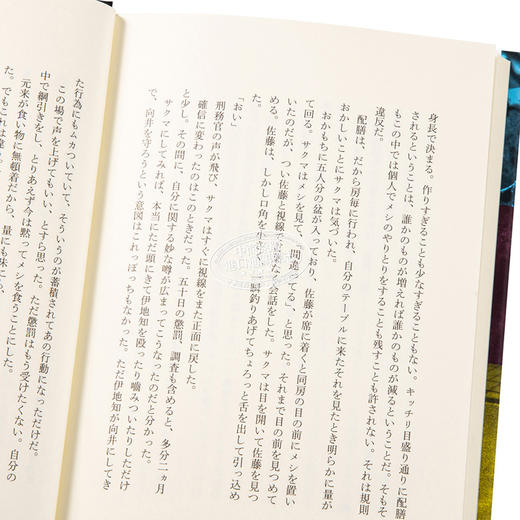 身長で決まる。作りすぎることも少なすぎることもない。キッチリ目盛り通りに配膳
されるということは、誰かのものが増えれば誰かのものが減るということだ。そもそ
もこの中では個人でメシのやりとりをすることも残すことも許されない。それは規則
違反だ。
配膳は、だから房毎に行われ、自分のテーブルに来たそれを見たとき明らかに量が
おかしいことにサクマは気づいた。
おかもちに五人分の盆が入っており、佐藤が席に着くと同房の目の前にメシを置い
て回る。サクマはメシを見て、間違ってる、と思った。それまで目の前を見つめて
いたのだが、つい佐藤と視線で会話をした。サクマは目を開いて佐藤を見つ
める。佐藤は、しかし口角を小さく釣りあげてちょろっと舌を出して引っ込め
た。
「おい」
刑務官の声が飛び、サクマはすぐに視線をまた正面に戻した。
確信に変わったのはこのときだった。五十日の懲罰、調査も含めると、多分二ヵ月
と少し。その間に、自分に関する妙な噂が広まってこうなったのだと分かった。
サクマにしてみれば、本当にただ頭にきて伊地知を殴ったり嚙みついたりしただけ
で、向井を守ろうという意図はこれっぽっちもなかった。ただ伊地知が向井にしてき
た行為にもムカついていて、そういうのが蓄積されてあの行動になっただけだ。
この場で声を上げてもいい、とすら思った。ただ懲罰はもう受けたくない。自分の
中で綱引きをし、とりあえず今は黙ってメシを食うことにした。
元来が食い物に無頓着だから、量にも味にも
た。でもこれは違